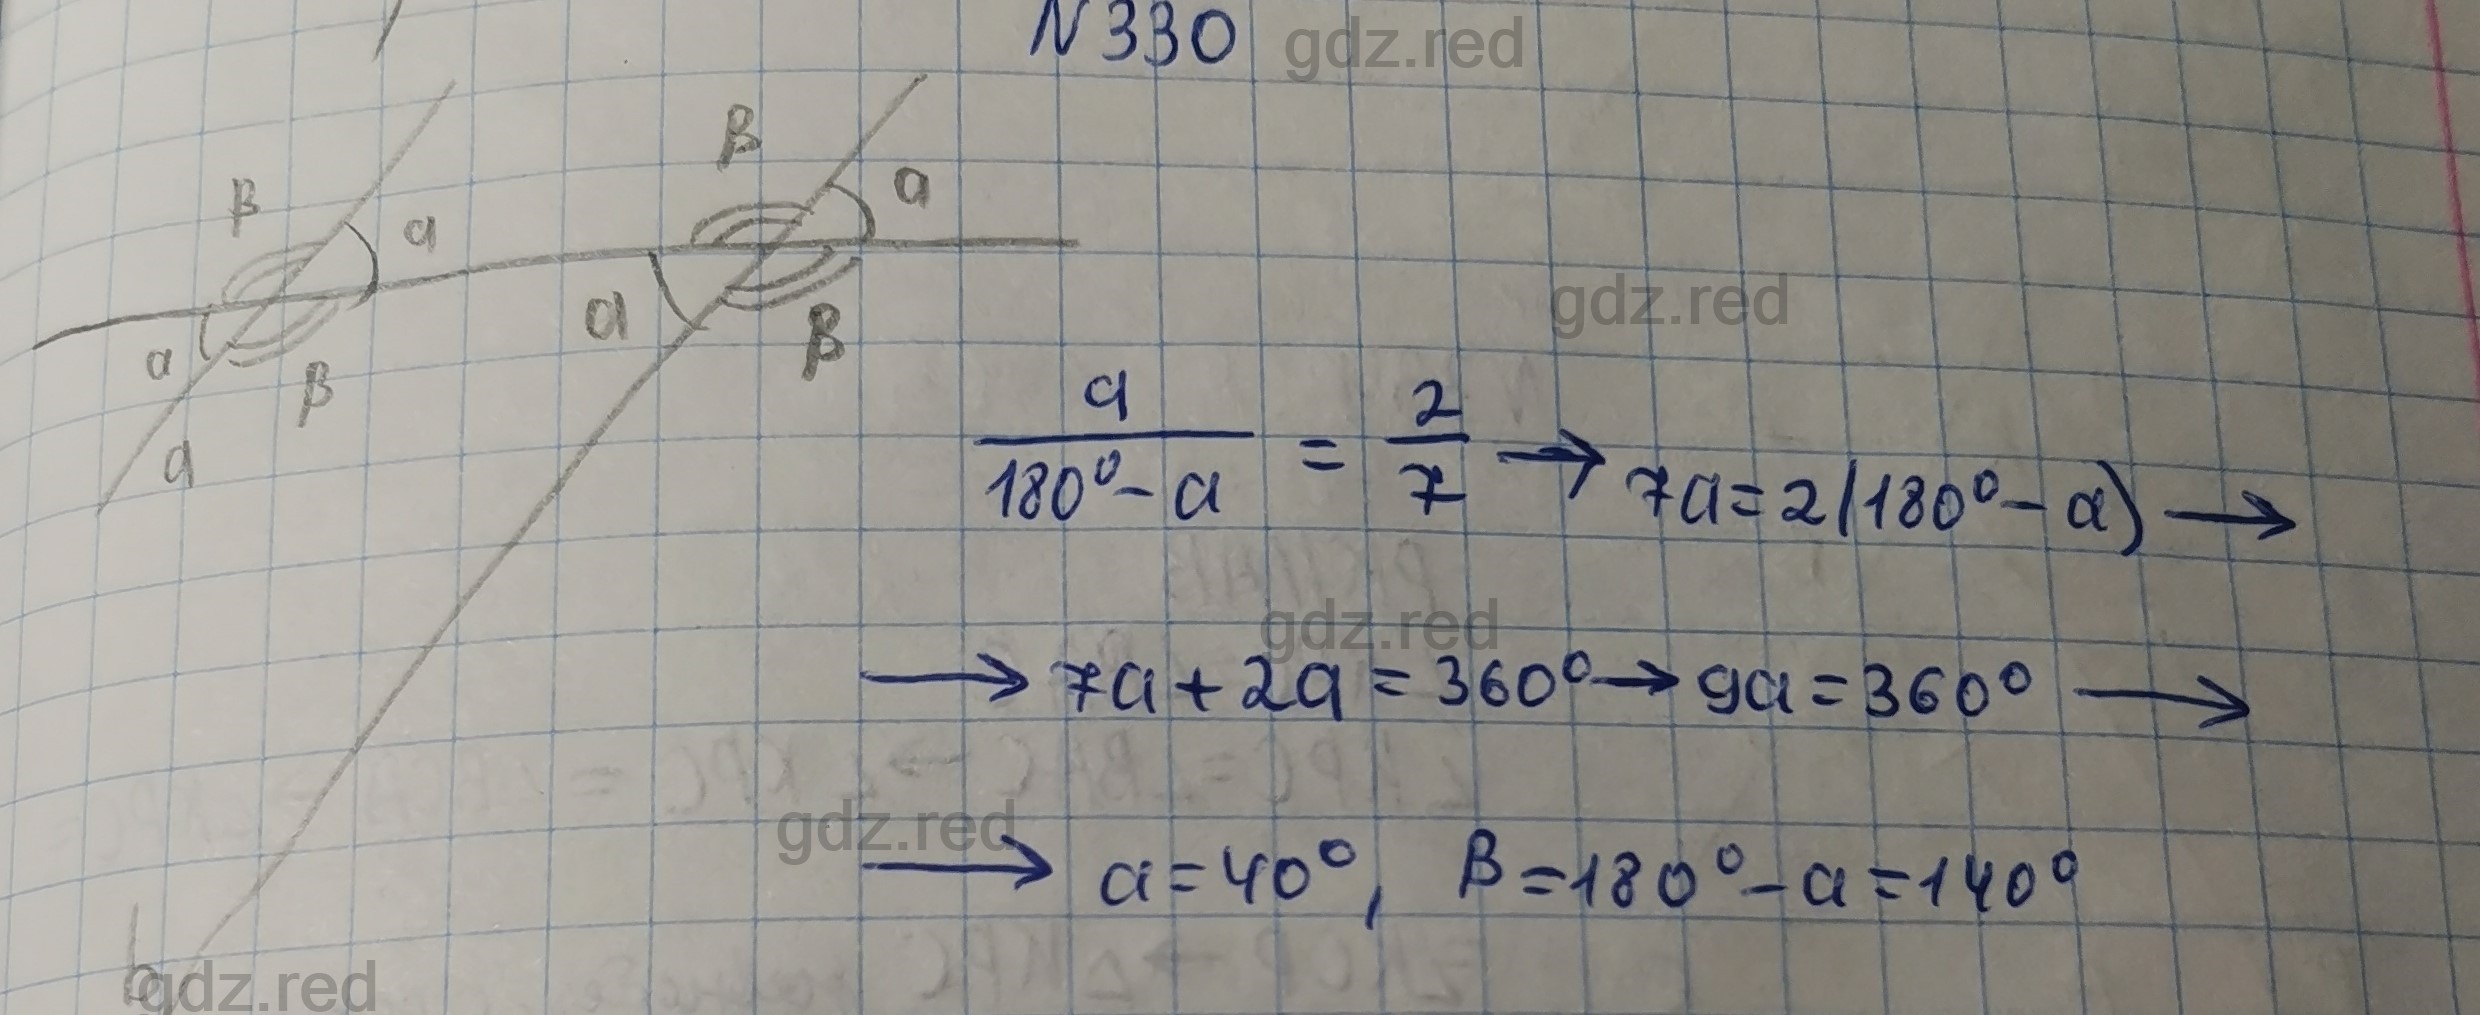 N 330 gdz.red
β a β a
a β a β
a
gdz.red
a/(180°-a) = 2/7 → 7a=2(180°-a) →
gdz.red
→ 7a+2a=360° → 9a=360° →
gdz.red
→ a=40°, β=180°-a=140°
b gdz.red